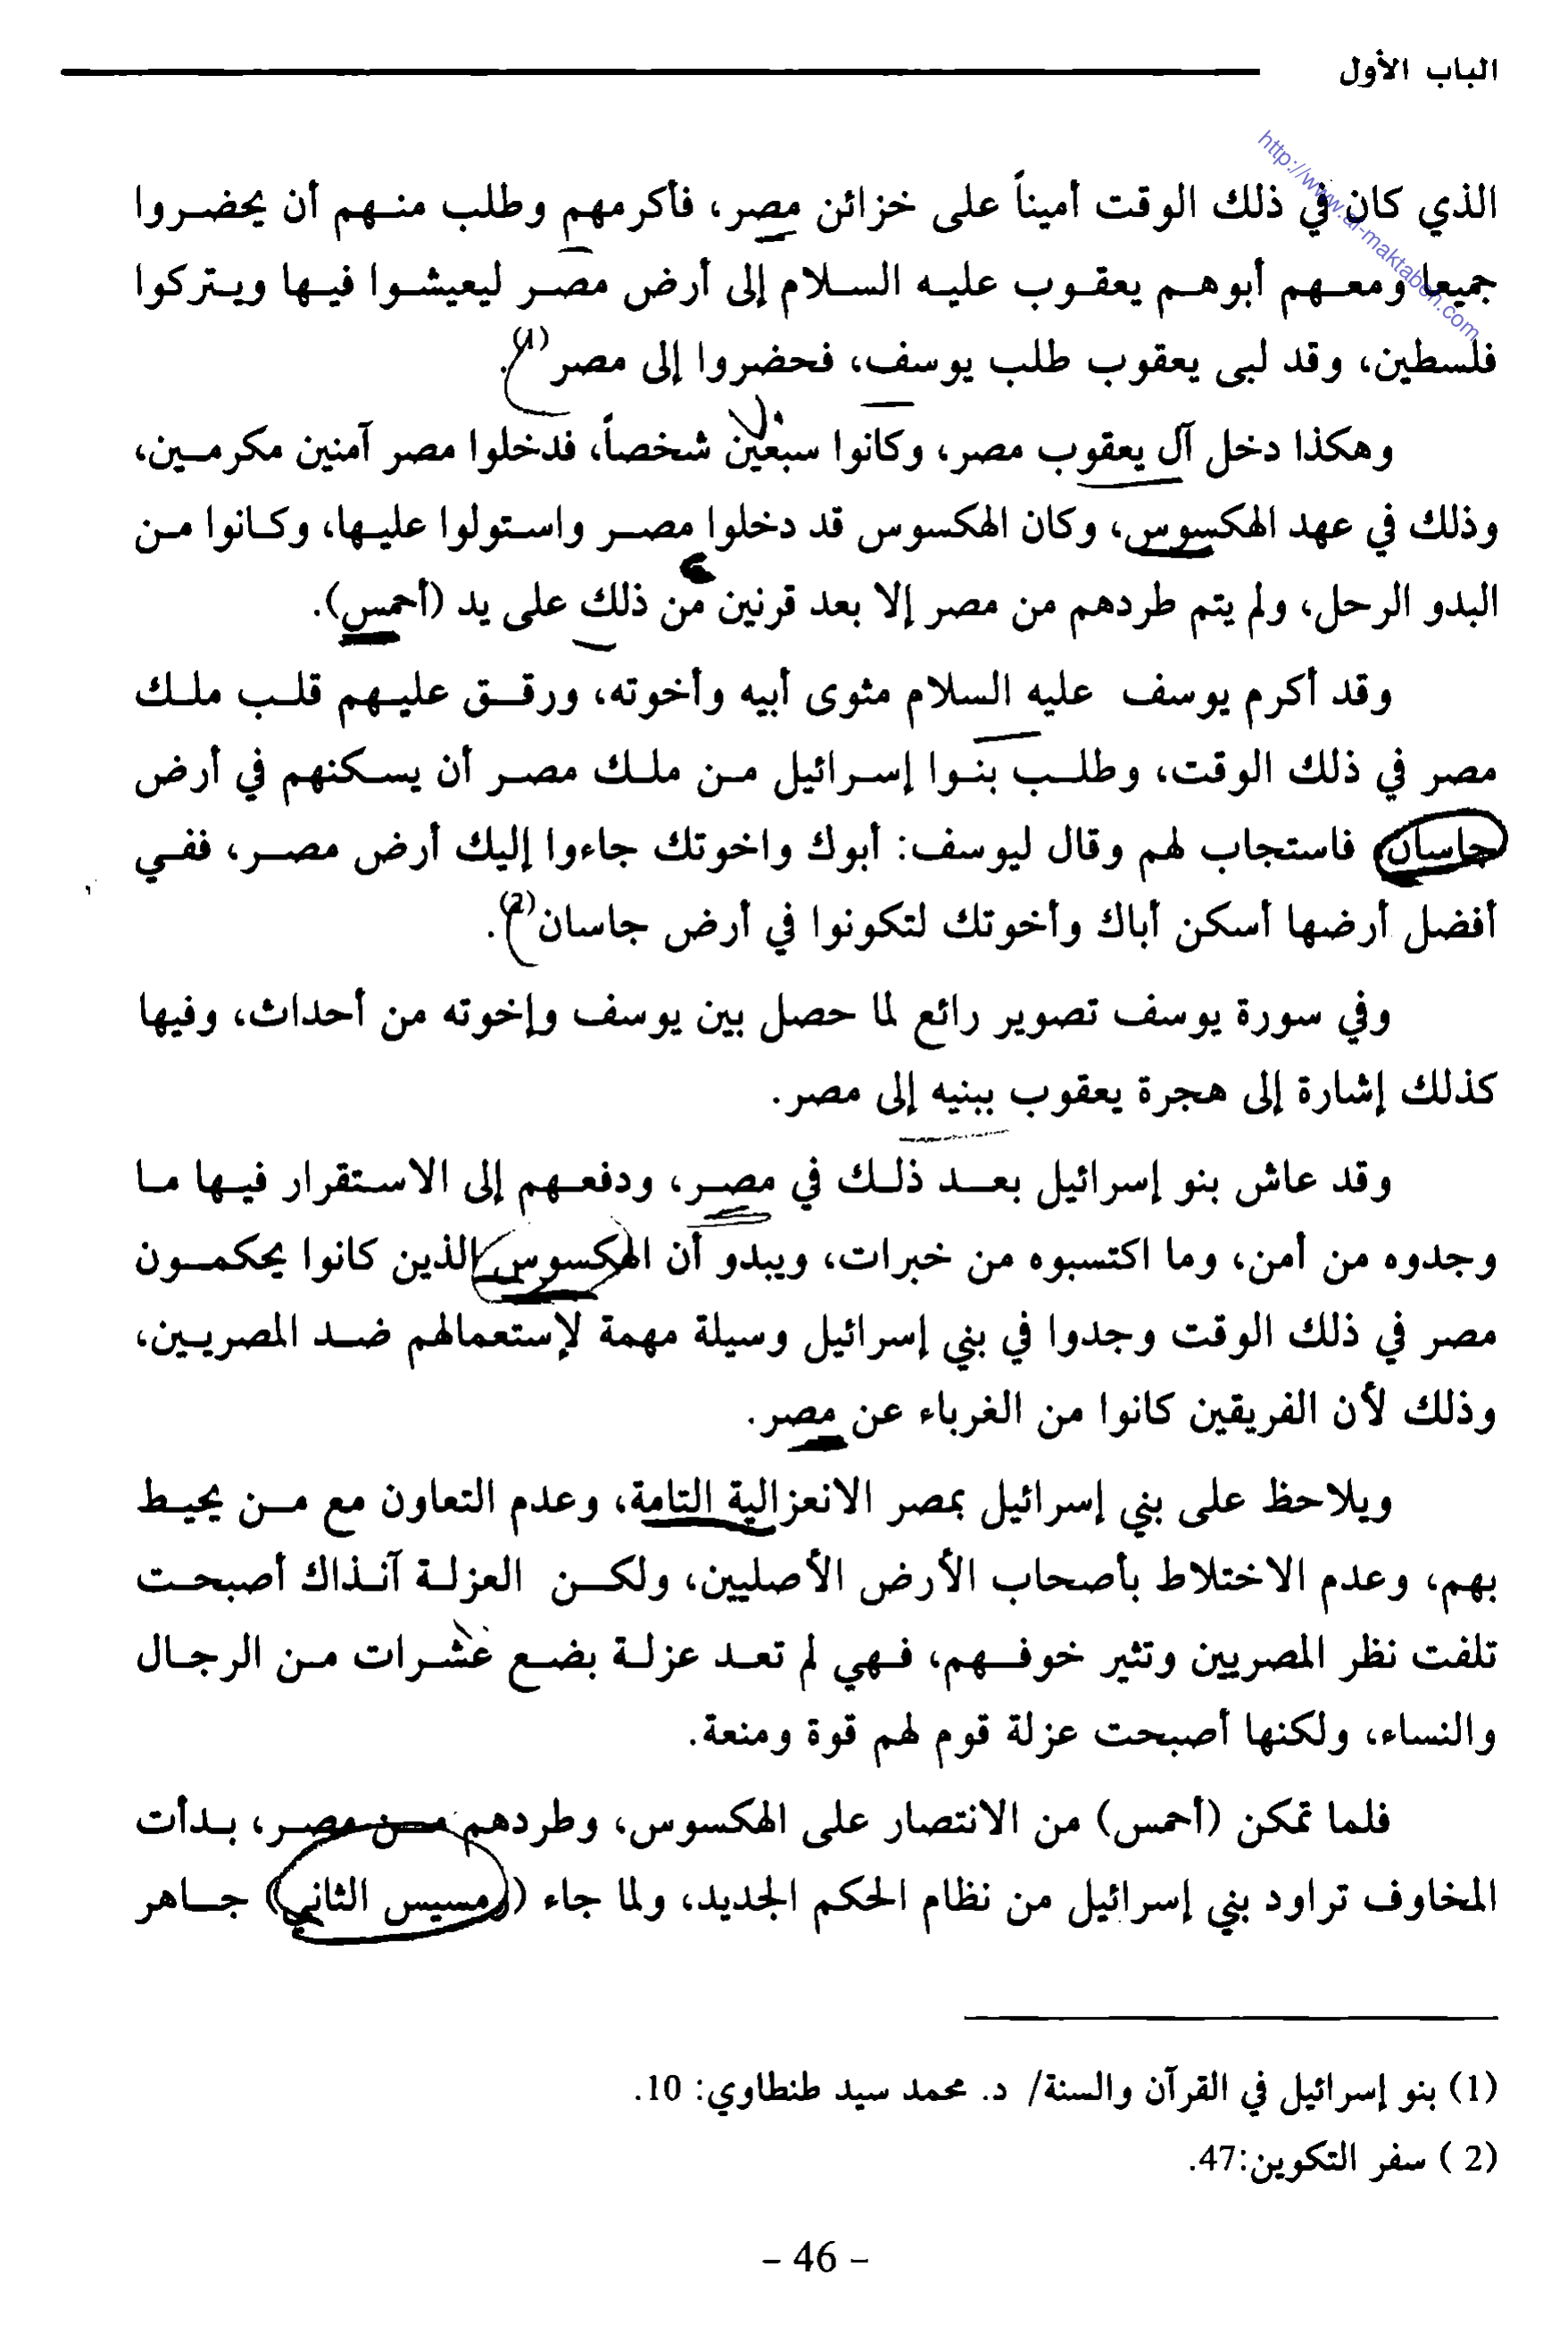 الباب الأول
http://www.al-maktabeh.com
الذي كان في ذلك الوقت أميناً على خزائن مصر، فأكرمهم وطلب منهم أن يحضروا
جميعا ومعهم أبوهم يعقوب عليه السلام إلى أرض مصر ليعيشوا فيها ويتركوا
فلسطين، وقد لبى يعقوب طلب يوسف، فحضروا إلى مصر(1).
وهكذا دخل آل يعقوب مصر، وكانوا سبعين شخصاً، فدخلوا مصر آمنين مكرمين،
وذلك في عهد الهكسوس، وكان الهكسوس قد دخلوا مصر واستولوا عليها، وكانوا من
البدو الرحل، ولم يتم طردهم من مصر إلا بعد قرنين من ذلك على يد (أحمس).
وقد أكرم يوسف عليه السلام مثوى أبيه وأخوته، ورقق عليهم قلب ملك
مصر في ذلك الوقت، وطلب بنوا إسرائيل من ملك مصر أن يسكنهم في أرض
جاسان فاستجاب لهم وقال ليوسف: أبوك واخوتك جاءوا إليك أرض مصر، ففي
أفضل أرضها أسكن أباك وأخوتك لتكونوا في أرض جاسان(2).
وفي سورة يوسف تصوير رائع لما حصل بين يوسف وإخوته من أحداث، وفيها
كذلك إشارة إلى هجرة يعقوب ببنيه إلى مصر.
وقد عاش بنو إسرائيل بعد ذلك في مصر، ودفعهم إلى الاستقرار فيها ما
وجدوه من أمن، وما اكتسبوه من خبرات، ويبدو أن الهكسوس الذين كانوا يحكمون
مصر في ذلك الوقت وجدوا في بني إسرائيل وسيلة مهمة لإستعمالهم ضد المصريين،
وذلك لأن الفريقين كانوا من الغرباء عن مصر.
ويلاحظ على بني إسرائيل بمصر الانعزالية التامة، وعدم التعاون مع من يحيط
بهم، وعدم الاختلاط بأصحاب الأرض الأصليين، ولكن العزلة آنذاك أصبحت
تلفت نظر المصريين وتثير خوفهم، فهي لم تعد عزلة بضع عشرات من الرجال
والنساء، ولكنها أصبحت عزلة قوم لهم قوة ومنعة.
فلما تمكن (أحمس) من الانتصار على الهكسوس، وطردهم من مصر، بدأت
المخاوف تراود بني إسرائيل من نظام الحكم الجديد، ولما جاء (رمسيس الثاني) جاهر
(1) بنو إسرائيل في القرآن والسنة/ د. محمد سيد طنطاوي: 10.
(2 ) سفر التكوين:47.
- 46 -